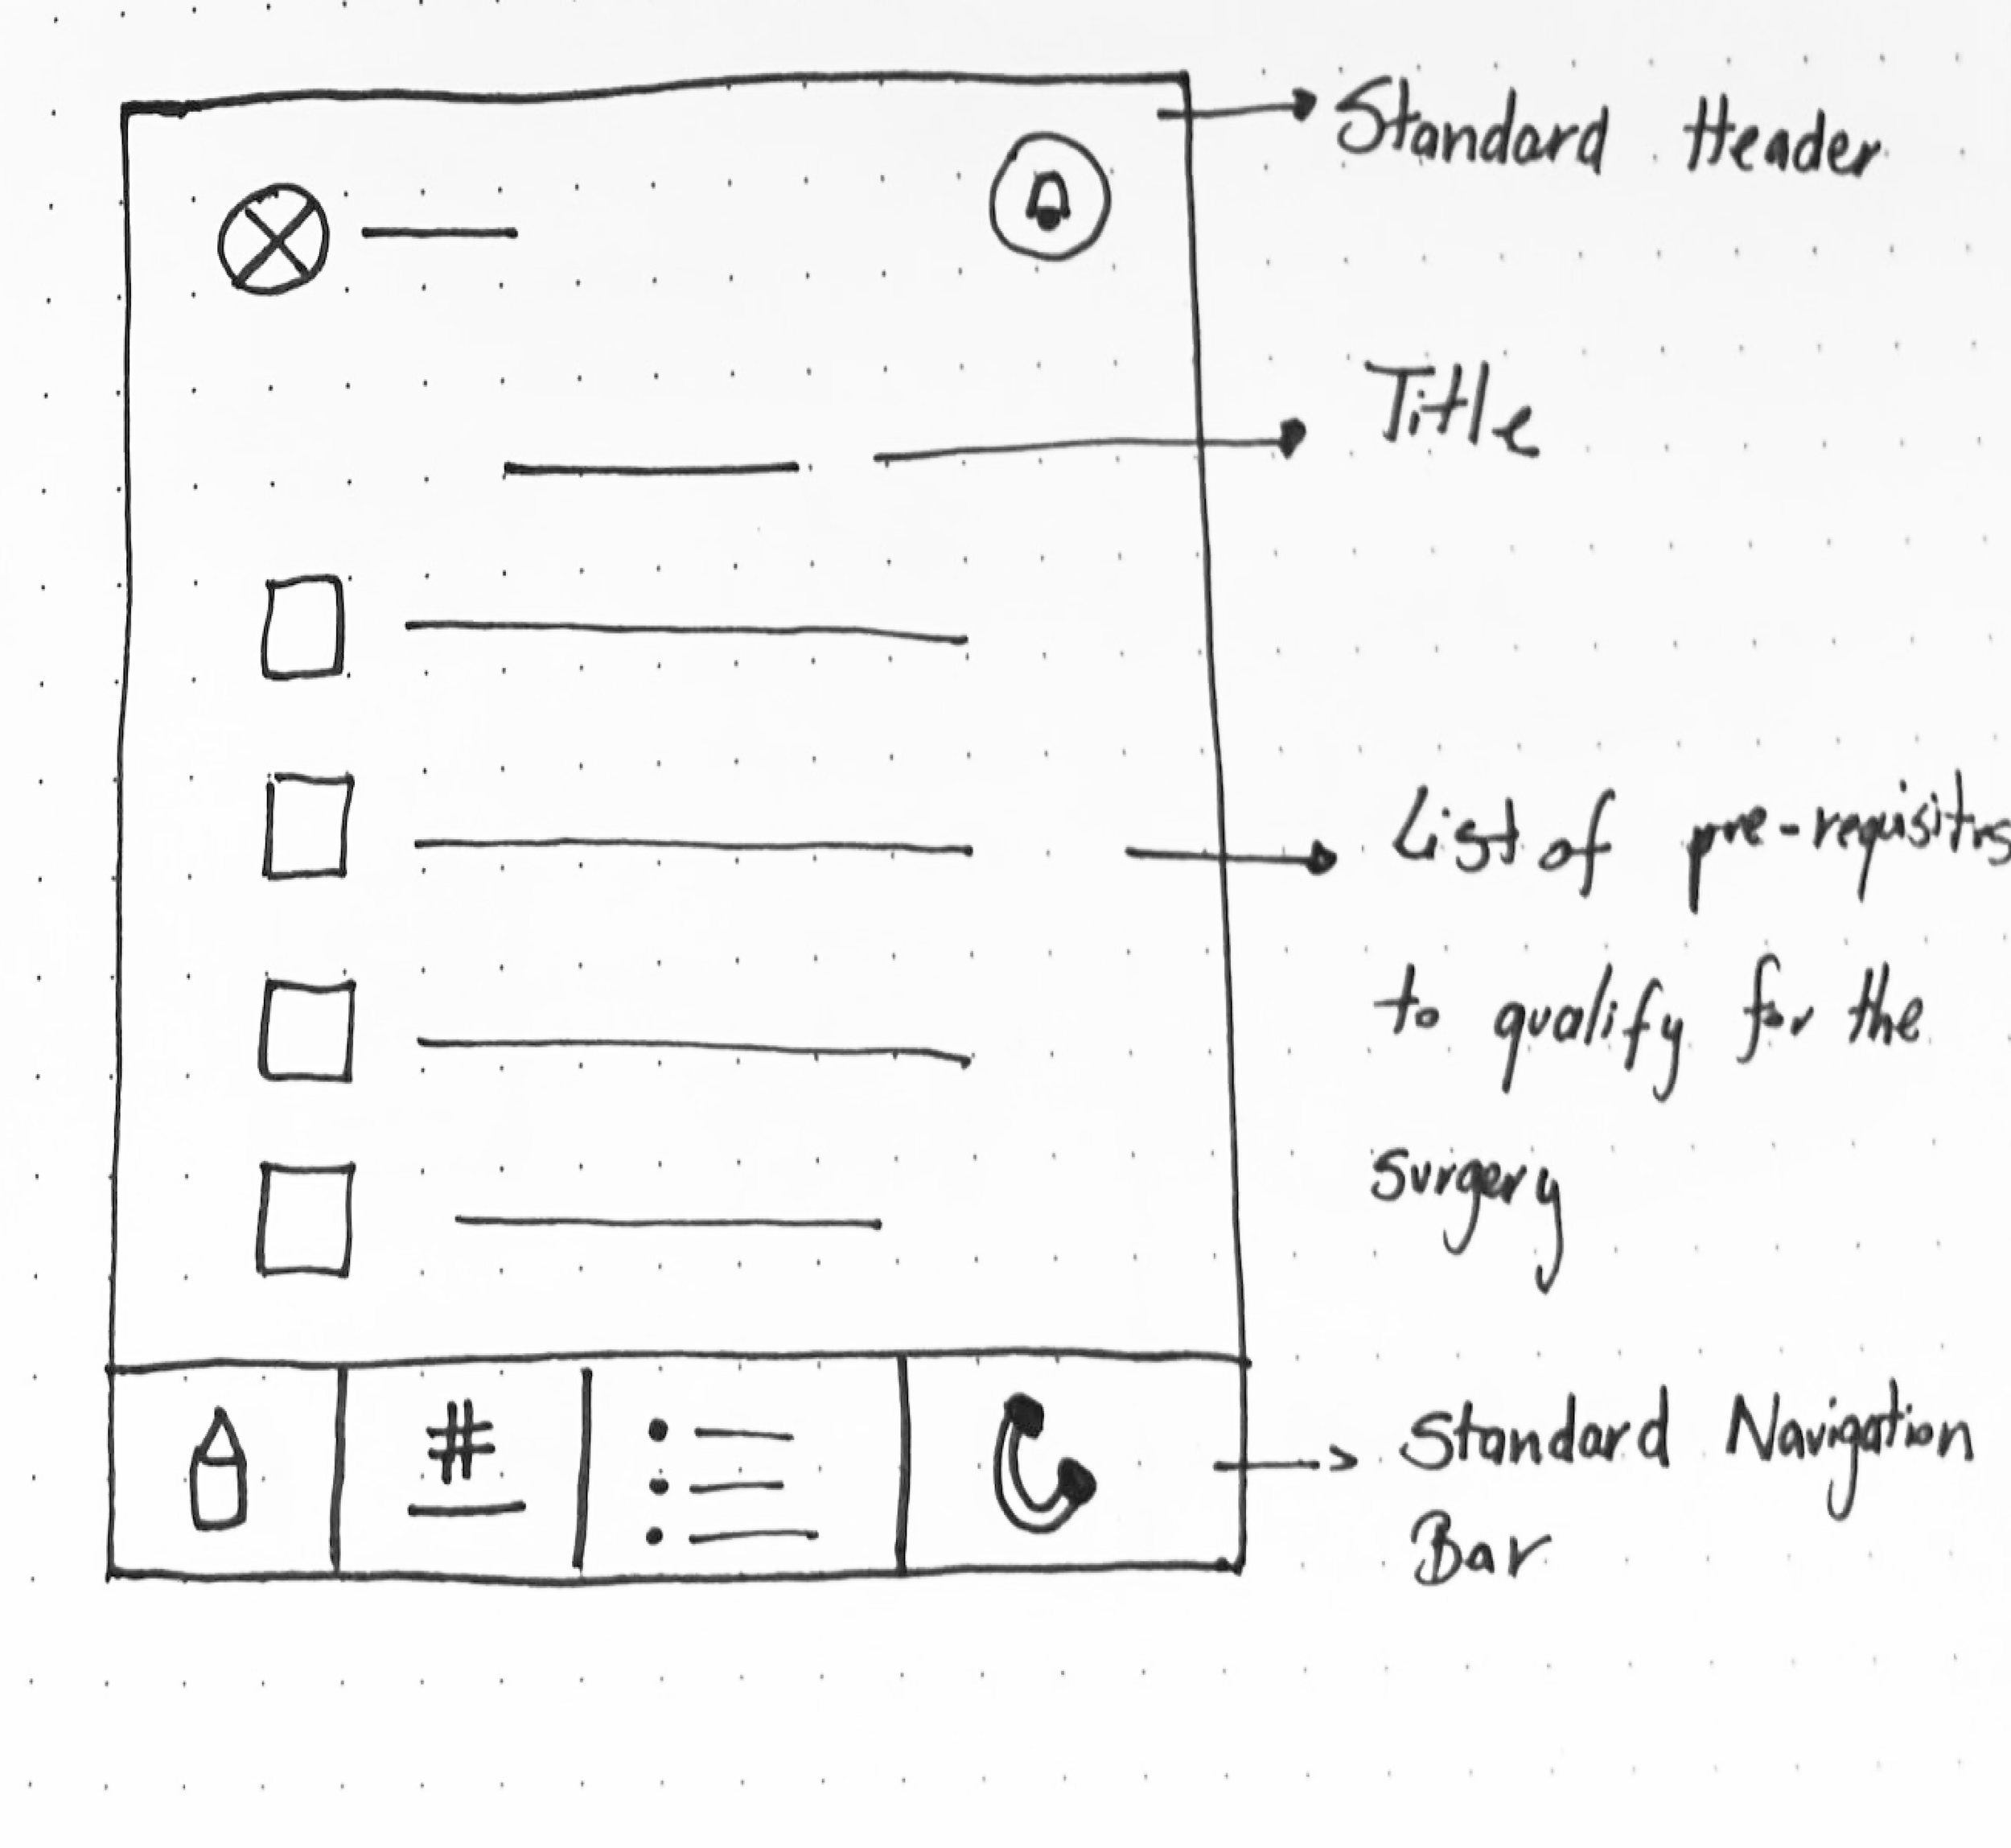 Standard Header
Title
List of pre-requisitrs
to qualify for the
surgery
#
Standard Navigation
Bar